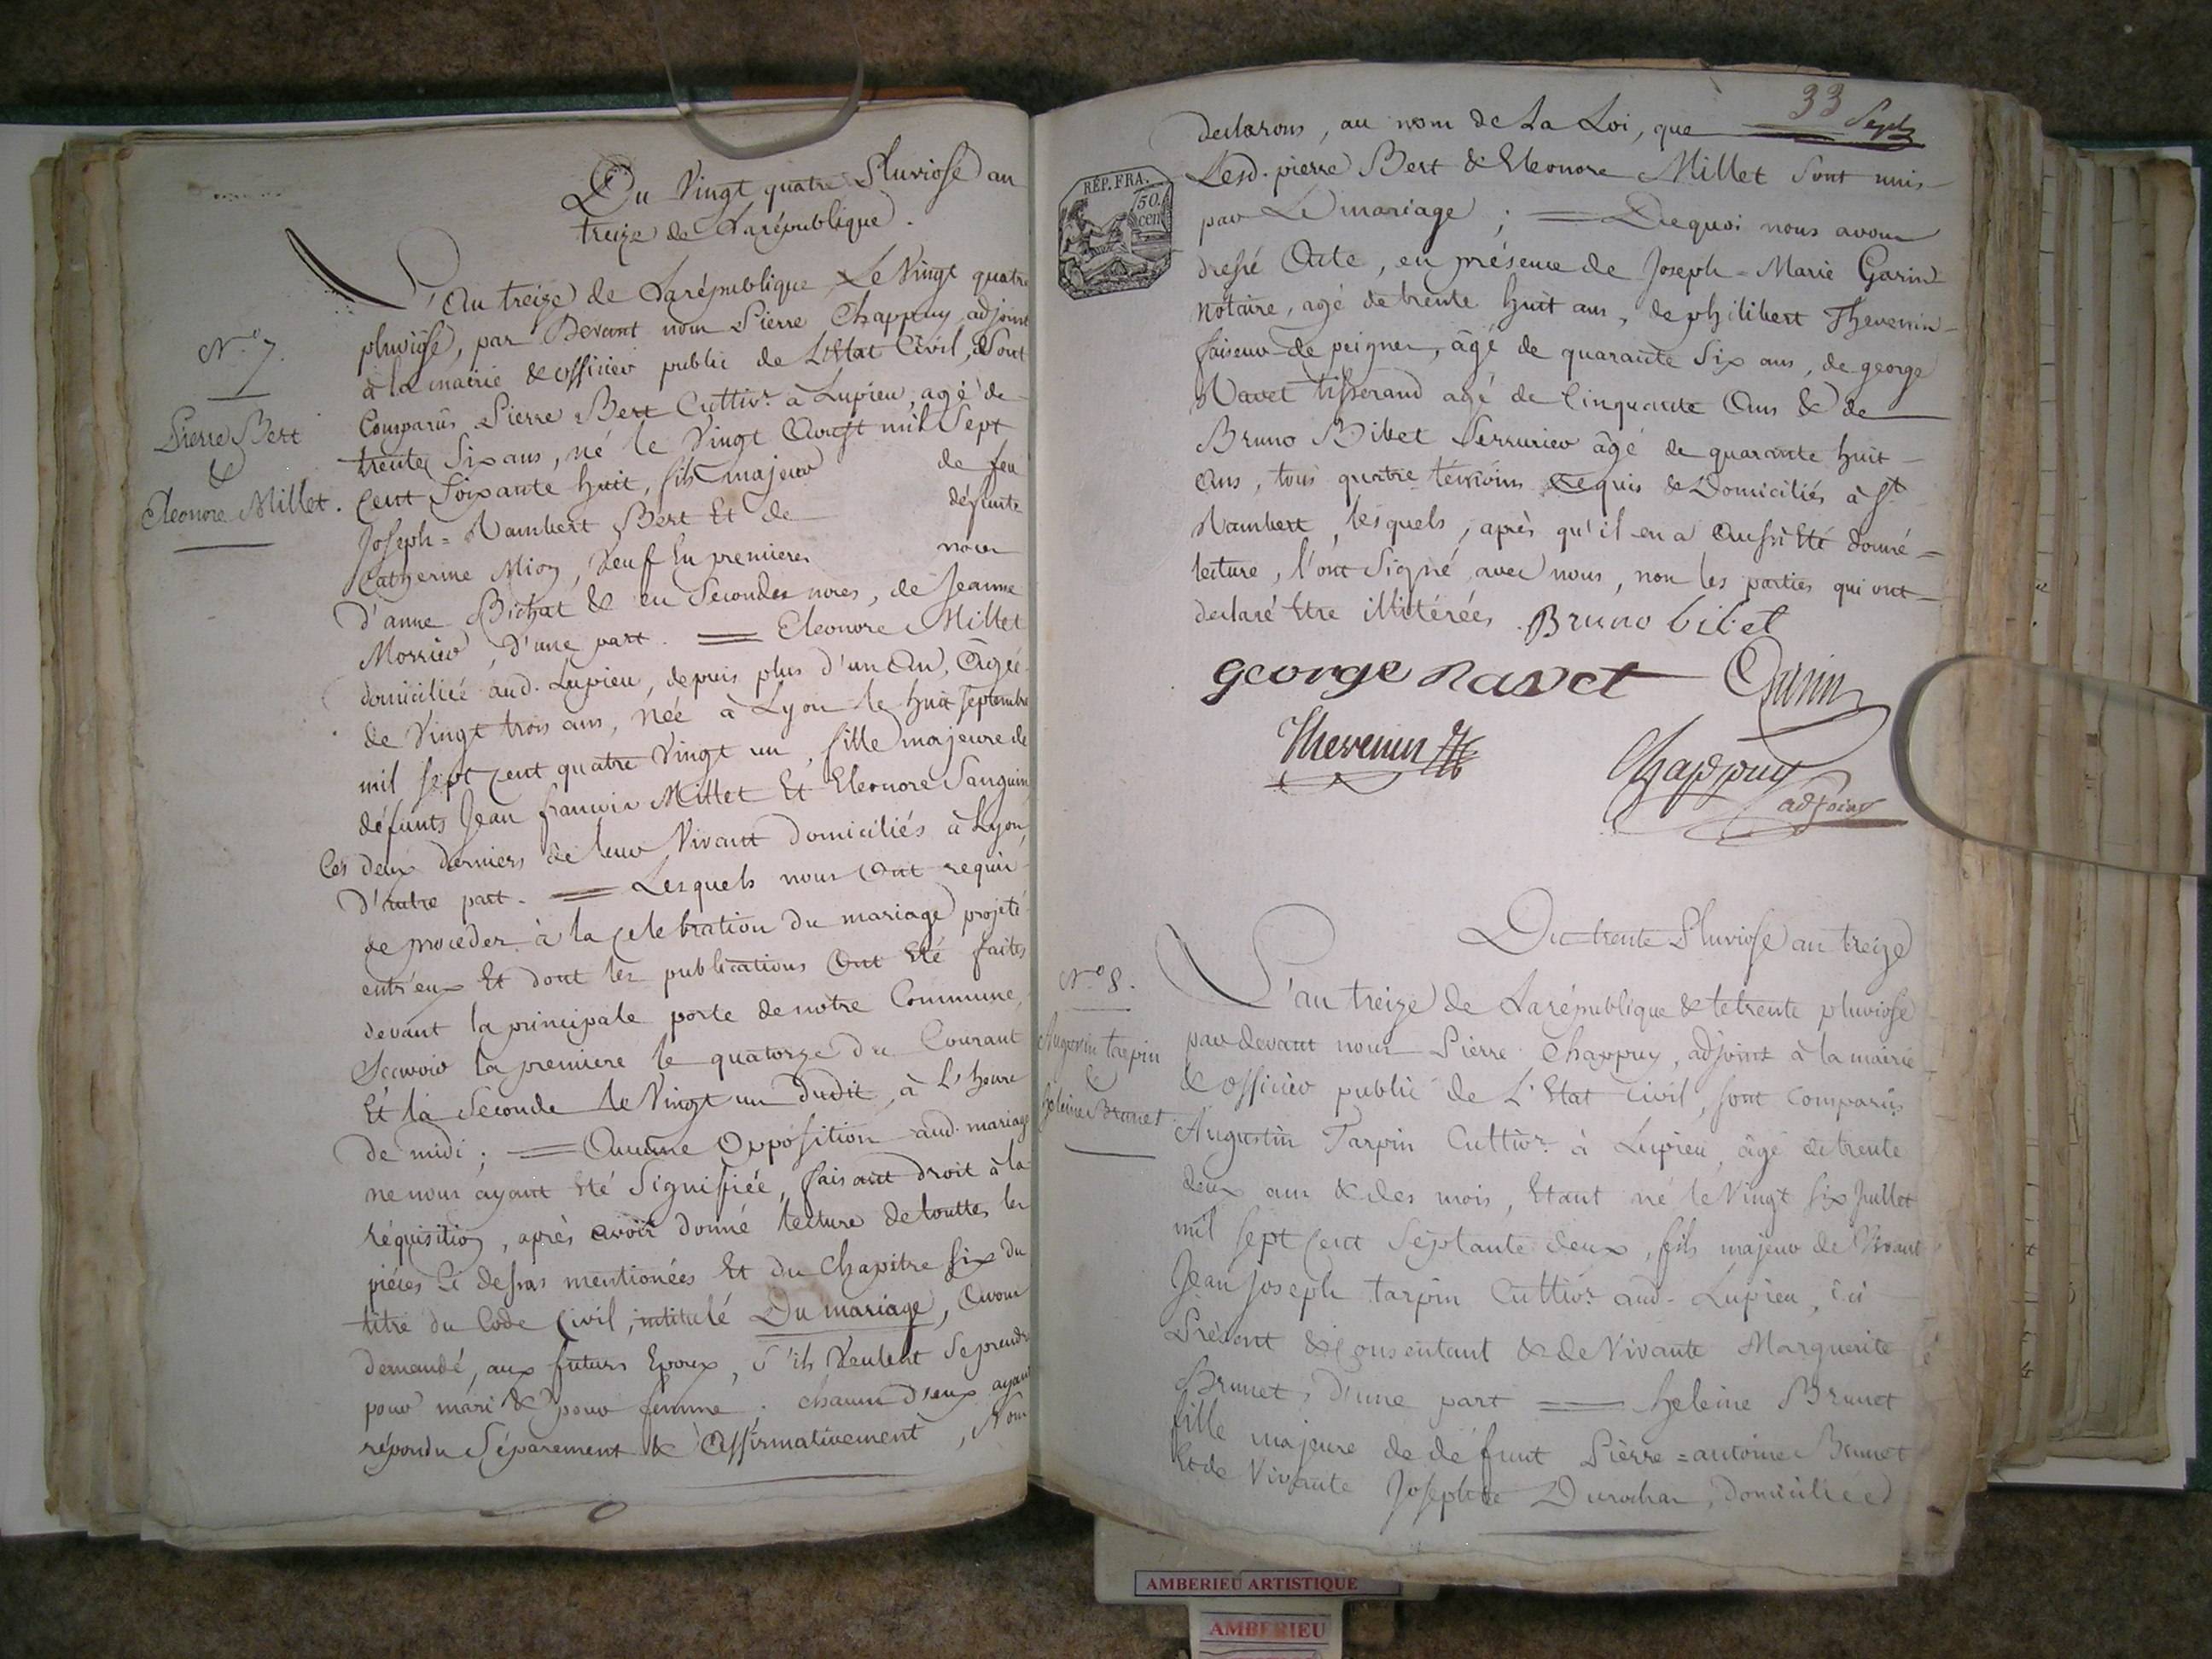 Du Vingt quatre Pluviose an
treize de Larépublique.
N.° 7.
Pierre Bert
&
Eleonore Millet.
L'an treize de Larépublique, Le Vingt quatre
pluviôse, par Devant nous Pierre Chappuy adjoint
à la mairie & officier public de L'Etat Civil, Sont
Comparûs Pierre Bert Cultiv.r à Lupieu, agé de
trente Six ans, né le Vingt Aoust mil Sept
Cent Soixante huit, fils majeur de feu
Joseph=Rambert Bert Et de défunte
Catherine Mion, Veuf En premieres noces
d'anne Bichat & en Secondes noces, de Jeanne
Morrier, d'une part. = Eleonore Millet
domiciliée aud. Lupieu, depuis plus d'un An, Agée
de Vingt trois ans, née à Lyon le huit Septembre
mil Sept Cent quatre Vingt un, fille majeure de
défunts Jean francois Millet Et Eleonore Sanguin
Ces deux derniers de leur Vivant domiciliés à Lyon,
D'autre part. = Lesquels nous Ont requis
de procéder à la Celebration du mariage projeté
entr'eux Et dont les publications Ont Eté faites
devant la principale porte de notre Commune,
Scavoir la premiere le quatorze du Courant
Et la Seconde le Vingt un dudit, à L'heure
de midi; = Aucune Opposition aud. mariage
ne nous ayant Eté Signifiée, faisant droit à la
réquisition, après avoir donné lecture de touttes les
piéces Ci dessus mentionées Et du Chapitre Six du
titre du Code Civil, intitulé Du mariage, Avons
demandé, aux futurs Epoux, S'ils Veulent Se prendre
pour mari & pour femme; chacun d'eux ayant
répondu Séparement & Affirmativement, Nous
33 Sept
declarons, au nom de La Loi, que
Lesd. pierre Bert & Eleonore Millet Sont unis
par Le mariage; = Dequoi nous avons
dressé Acte, en présence de Joseph=Marie Garin
notaire, agé de trente huit ans, de philibert Thevenin
faiseur de peignes, âgé de quarante Six ans, de george
Navet tisserand agé de Cinquante Ans & de
Bruno Bibet Serrurier âgé de quarante huit
Ans, tous quatre témoins Requis & Domiciliés à S.t
Rambert, lesquels, après qu'il en a Aussi Eté donné
lecture, l'ont Signé avec nous, non les parties qui ont
declaré Etre illitérées. Bruno bibet
george navet Garin
Thevenin
Chappuy
adjoint
REP. FRA.
50.
cen
Du trente Pluviose an treize
N.° 8.
Augustin tarpin
&
heleine Brunet
L'an treize de Larépublique & le trente pluviose
par devant nous Pierre Chappuy, adjoint à la mairie
& officier public de L'Etat Civil, Sont Comparûs
Augustin Tarpin Cultiv.r à Lupieu, âgé de trente
deux ans & des mois, Etant né le Vingt Six Juillet
mil Sept Cent Septante deux, fils majeur de Vivant
Jean Joseph tarpin Cultiv.r aud. Lupieu, ici
Présent & Consentant & de Vivante Marguerite
Brunet, d'une part = heleine Brunet
fille majeure de défunt Pierre=antoine Brunet
Et de Vivante Josephte Durochat, domiciliée
AMBERIEU ARTISTIQUE
AMBERIEU